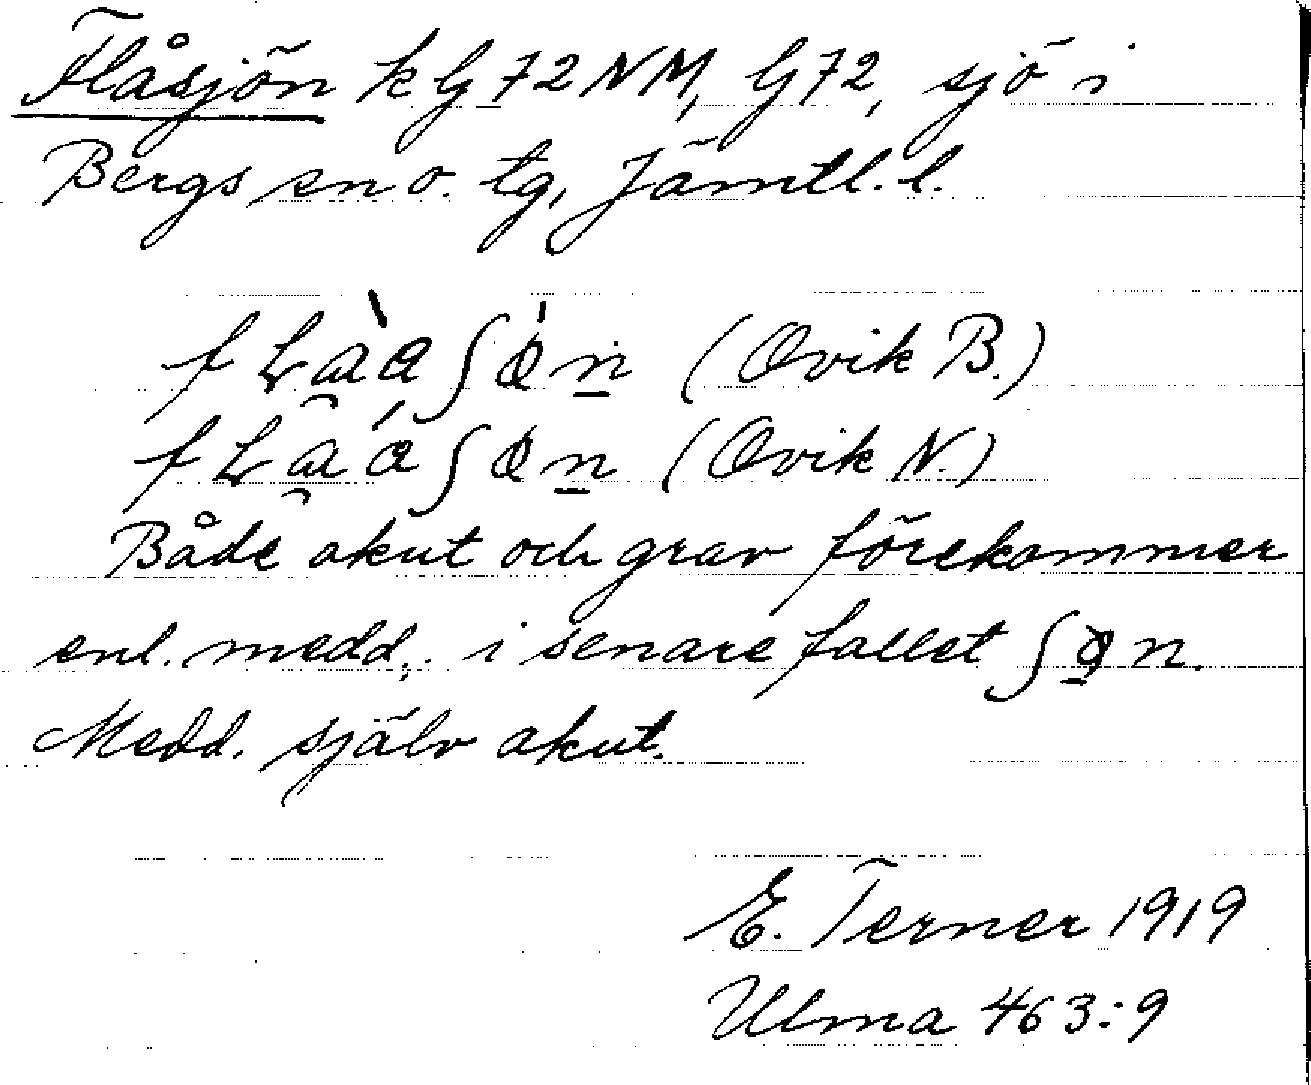 Flåsjön k G 72 NM, G72, sjö i
Bergs sn o. tg, Jämtl. l.
(Ovik B.)
(Ovik N.)
Både akut och grav förekommer
enl. medd., i senare fallet
Medd. själv akut.
E. Terner 1919
Ulma 463:9